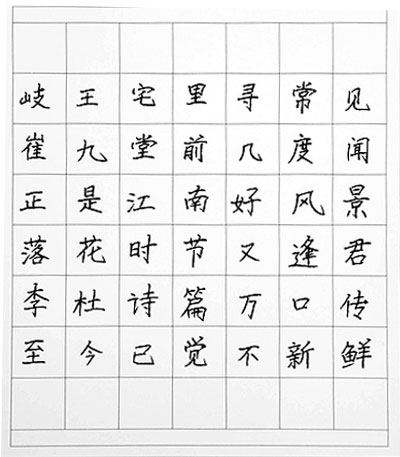 岐王宅里寻常见
崔九堂前几度闻
正是江南好风景
落花时节又逢君
李杜诗篇万口传
至今已觉不新鲜